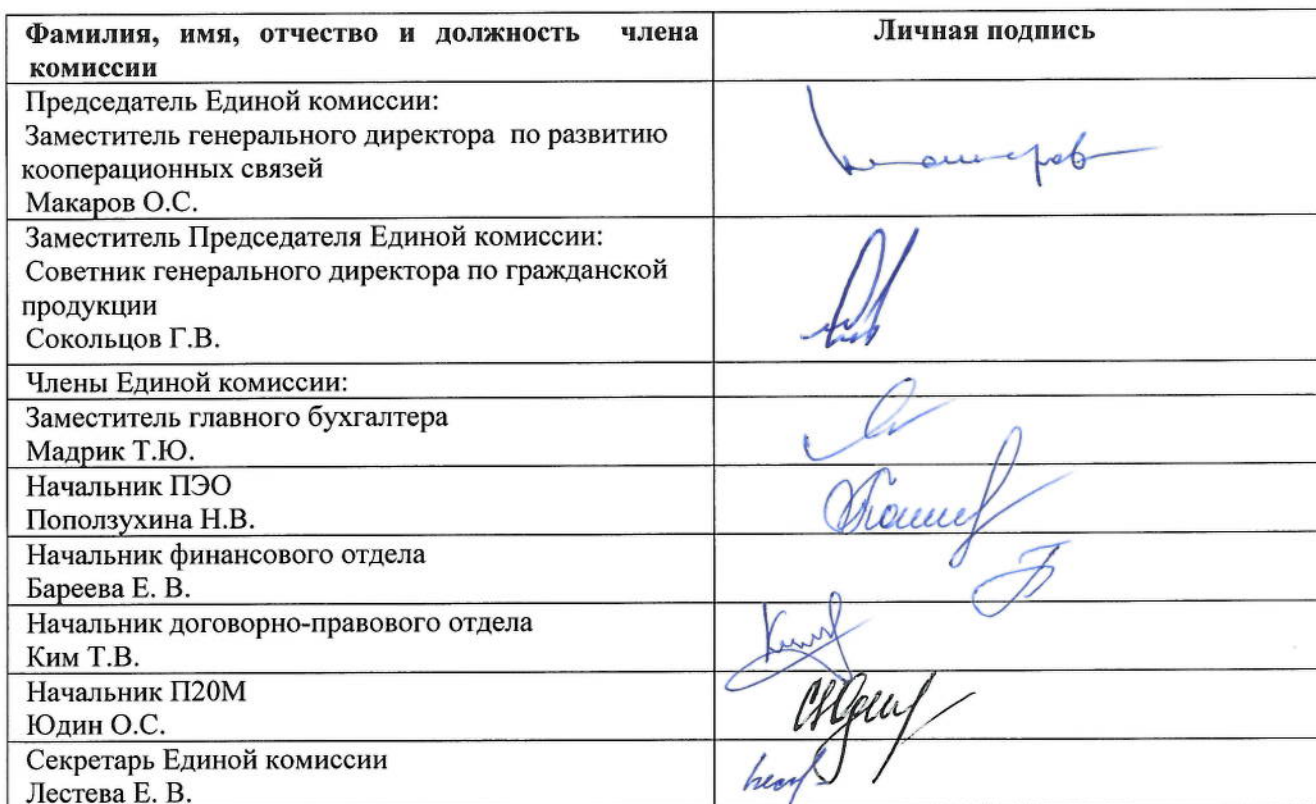 Фамилия, имя, отчество и должность члена Личная подпись
комиссии
Председатель Единой комиссии:
Заместитель генерального директора по развитию
кооперационных связей
Макаров О.С.
Заместитель Председателя Единой комиссии:
Советник генерального директора по гражданской
продукции
Сокольцов Г.В.
Члены Единой комиссии:
Заместитель главного бухгалтера
Мадрик Т.Ю.
Начальник ПЭО
Поползухина Н.В.
Начальник финансового отдела
Бареева Е. В.
Начальник договорно-правового отдела
Ким Т.В.
Начальник П20М
Юдин О.С.
Секретарь Единой комиссии
Лестева Е. В.